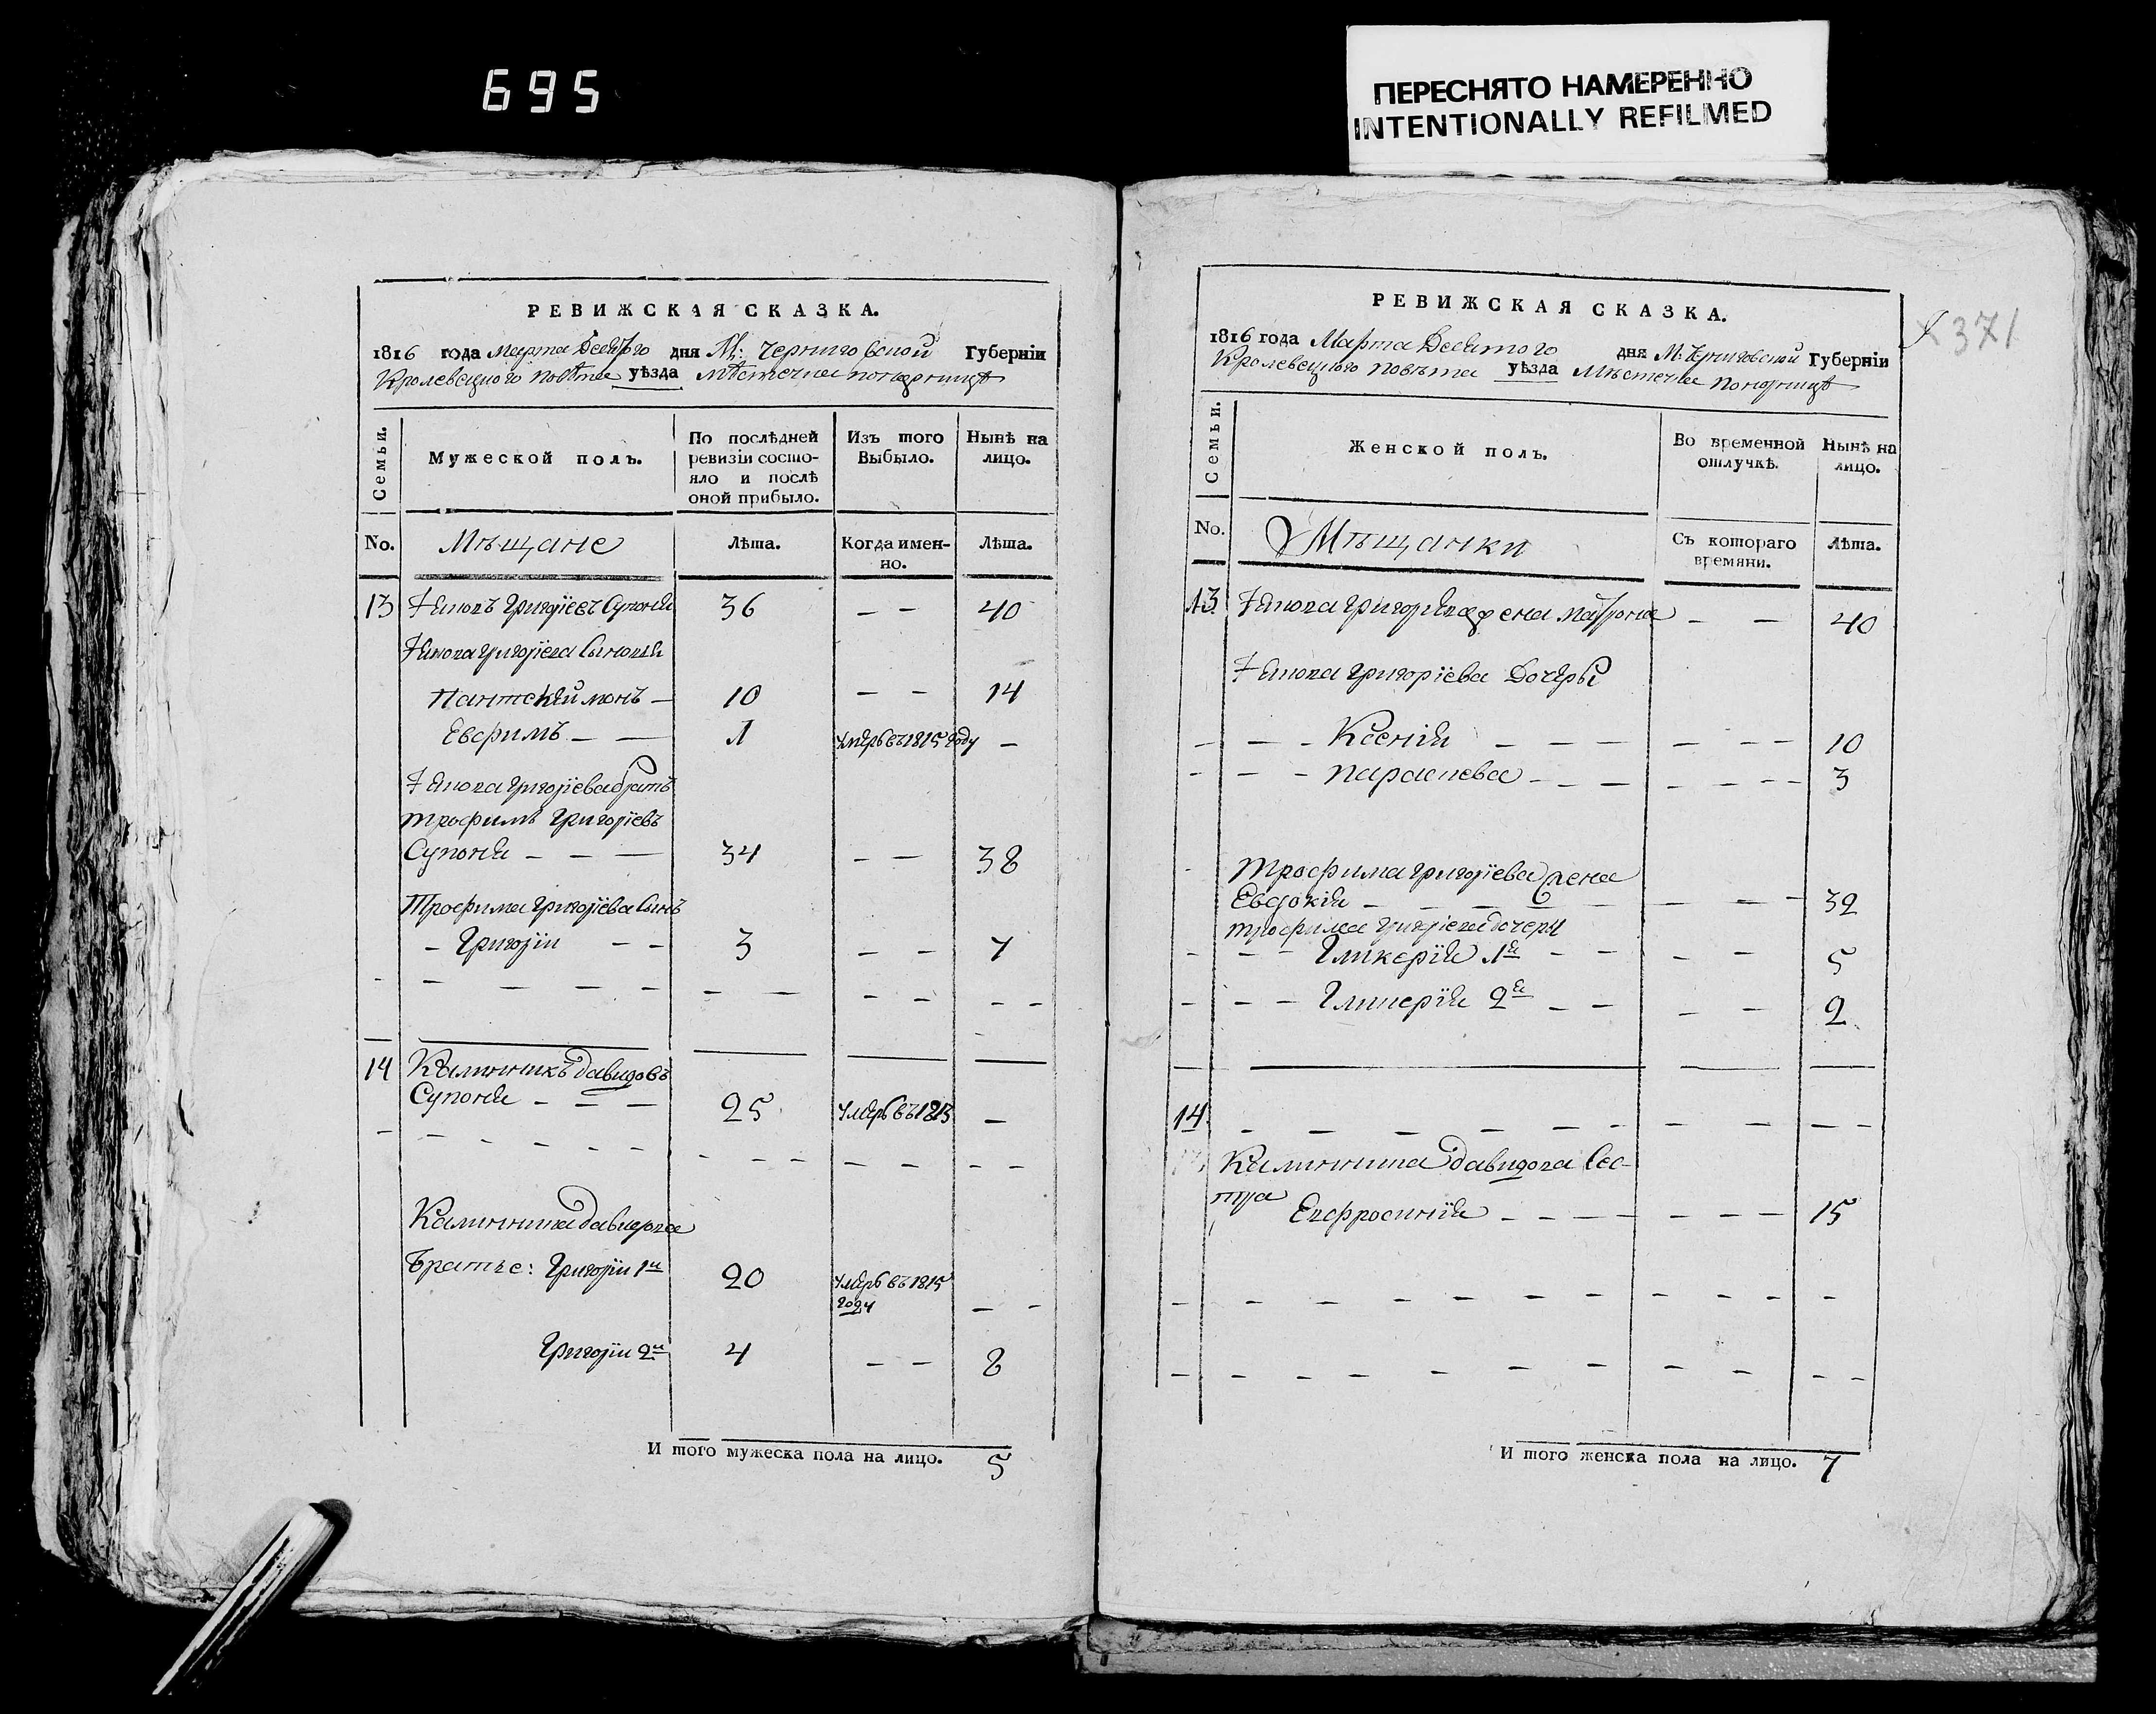 695
ПЕРЕСНЯТО НАМЕРЕННО
INTENTIONALLY REFILMED
РЕВИЖСКАЯ СКАЗКА.
1816 года Марта Десятого дня М: Черниговской Губерніи
Кролевецкого повѣта уѣзда мѣстечка понорницѣ
Семьи.
Мужеской полъ.
По послѣдней ревизіи состо-
яло и послѣ
оной прибыло.
Изъ того
Выбыло.
Нынѣ на
лицо.
No.
Мѣщане
Лѣта.
Когда имен-
но.
Лѣта.
13 Григоріевъ Супоня 36 — — 40
Григоріева Сыновя
Пантелеймонъ — 10 — — 14
Евфимъ — — 1 умеръ въ 1815 году —
Григоріева братъ
трофимъ Григоріевъ
Супоня — — — 34 — — 38
Трофима Григоріева Сынъ
— Григоріи — — 3 — — 7
14 Калинникъ Давидовъ
Супоня — — — 25 умеръ въ 1813 —
Калинника Давидова
Братъе: Григоріи 1й 20 умеръ въ 1815
году — —
Григоріи 2й 4 — — 8
И того мужеска пола на лицо. 5
371
РЕВИЖСКАЯ СКАЗКА.
1816 года Марта Десятого дня М. Черниговской Губерніи
Кролевецкого повѣта уѣзда Мѣстечка понорницѣ
Семьи.
Женской полъ.
Во временной
отлучкѣ.
Нынѣ на
лицо.
No.
Мѣщанки
Съ котораго
времяни.
Лѣта.
13 Григоріева жена — — 40
Григоріева Дочеры
— — — Ксенія — — — — — — 10
— — — параскева — — — — — — 3
Трофима Григоріева жена
Евдокія — — — — — — — 32
трофима Григоріева дочеры
— — — Гликерія 1я — — — — 5
— — — Гликерія 2я — — — — 2
14.
Калинника Давидова Сес-
тра
Евфросинія — — — — — — — 15
И того женска пола на лицо. 7